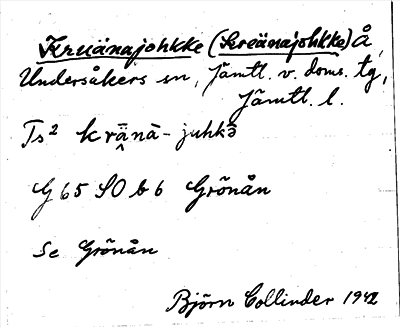 Kruänajohkke (Kreänajohkke) å,
Undersåkers sn, Jämtl. v. doms. tg,
Jämtl. l.
Ts² krä̭nà-juhkə̄
G 65 SO b 6 Grönån
Se Grönån
Björn Collinder 1942